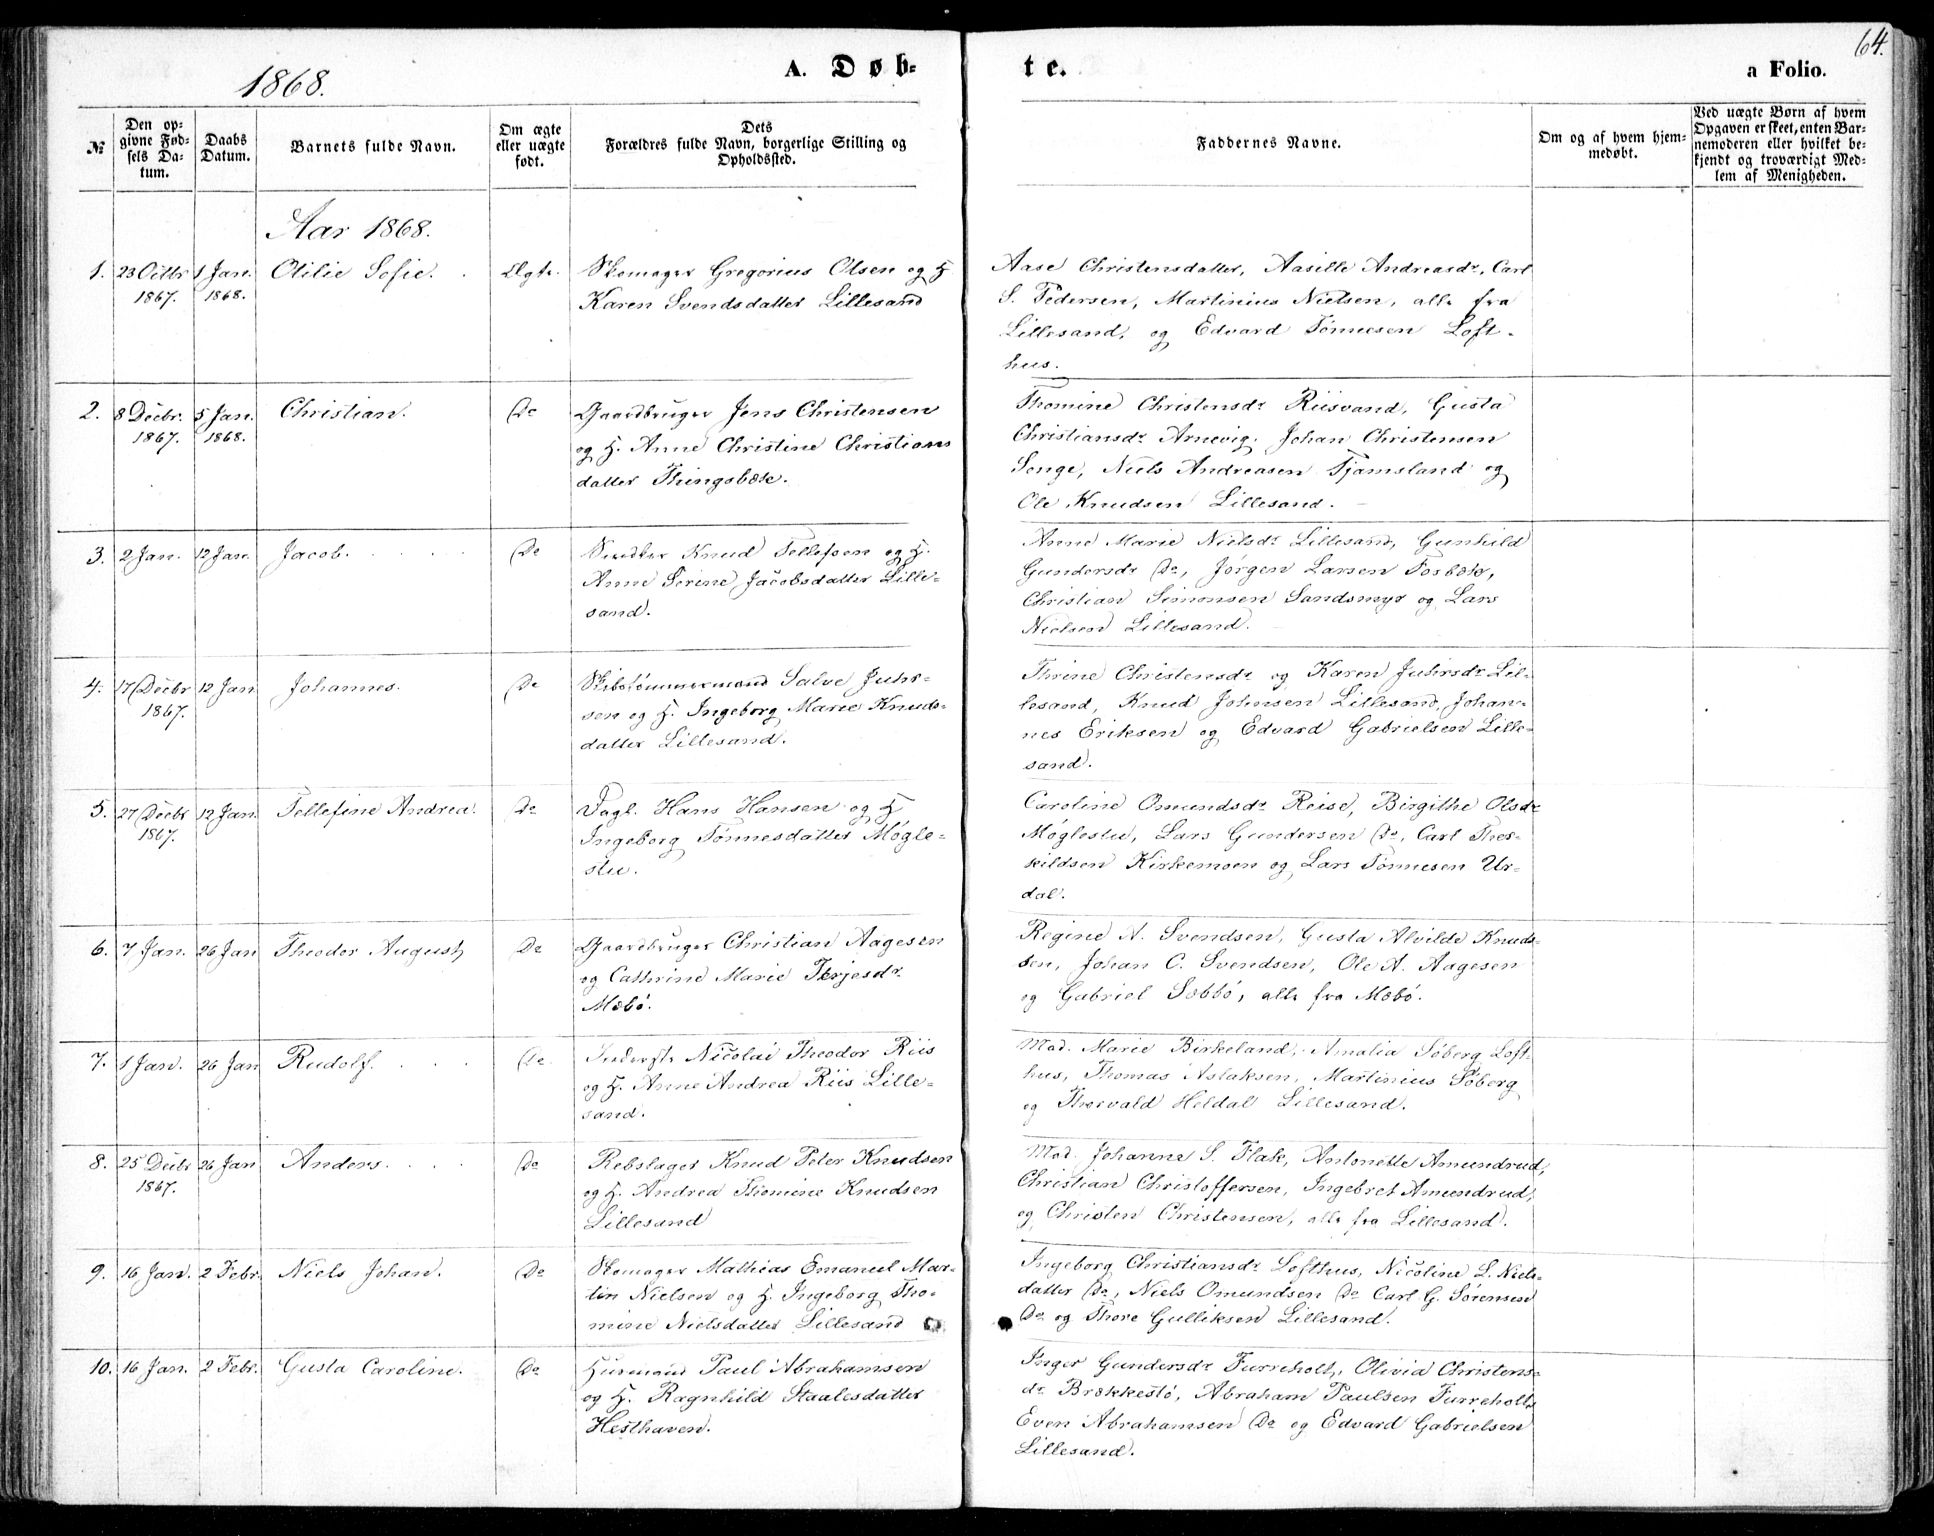 64.
1868.
A. Døb-
te.
a Folio.
№
Den op-
givne Fød-
sels Da-
tum.
Daabs
Datum.
Barnets fulde Navn.
Om ægte
eller uægte
født.
Dets
Forældres fulde Navn, borgerlige Stilling og
Opholdssted.
Faddernes Navne.
Om og af hvem hjem-
medøbt.
Ved uægte Børn af hvem
Opgaven er skeet, enten Bar-
nemoderen eller hvilket be-
kjendt og troværdigt Med-
lem af Menigheden.
Aar 1868.
1. 23 Octbr 1 Jan. Otilie Sofie. Ægte.
1867. 1868.
Skomager Gregorius Olsen og H.
Karen Svendsdatter Lillesand
Aase Christensdatter, Aasille Andreasdr, Carl
S. Pedersen, Martinius Nielsen, alle fra
Lillesand, og Edvard Tönnesen Loft-
hus.
2. 8 Decbr. 5 Jan. Christian. Do
1867. 1868.
Gaardbruger Jens Christensen
og H. Anne Christine Christians
datter Tingsbæk.
Thomine Christensdr Riisvand, Gusta
Christiansdr Arnevig. Johan Christensen
Senge, Niels Andreasen Tjamsland og
Ole Knudsen Lillesand.
3. 2 Jan. 12 Jan. Jacob. Do
Snedker Knud Tellefsen og H.
Anne Serine Jacobsdatter Lille-
sand.
Anne Marie Nielsdr Lillesand, Gunhild
Gundersdr Do, Jörgen Larsen Fosbæk,
Christian Simonsen Sandsmyr og Lars
Nielsen Lillesand.
4. 17 Decbr 12 Jan Johannes. Do
1867.
Skibstömmermand Salve Juhr-
sen og H. Ingeborg Marie Knuds-
datter Lillesand.
Thrine Christensdr og Karen Juhrsdr Lil-
lesand, Knud Johnsen Lillesand, Johan-
nes Eriksen og Edvard Gabrielsen Lille-
sand.
5. 27 Decbr 12 Jan. Tellefine Andrea. Do
1867.
Dagl. Hans Hansen og H
Ingeborg Tönnesdatter Mögle-
stu.
Caroline Omundsdr Reise, Birgithe Olsdr
Möglestu, Lars Gundersen Do, Carl Ther-
kildsen Kirkemoen og Lars Tönnesen Ur-
dal.
6. 7 Jan. 26 Jan Theodor August Do
Gaardbruger Christian Aagesen
og Cathrine Marie Terjesdr.
Mæbö.
Regine A. Svendsen, Gusta Alvilde Knud-
sen, Johan C. Svendsen, Ole A. Aagesen
og Gabriel Sæbbö, alle fra Mæbö.
7. 1 Jan. 26 Jan Rudolf. Do.
Nicolai Theodor Riis
og H. Anne Andrea Riis Lille-
sand.
Mad. Marie Birkeland, Amalia Söberg Loft-
hus, Thomas Aslaksen, Martinius Söberg
og Thorvald Heldal Lillesand.
8. 25 Decbr 26 Jan Anders. Do
1867.
Rebslager Knud Peter Knudsen
og H. Andrea Thomine Knudsen
Lillesand
Mad. Johanne S. Flak, Antonette Amundrud,
Christian Christoffersen, Ingebret Amundrud,
og Christen Christensen, alle fra Lillesand.
9. 16 Jan. 2 Febr. Niels Johan. Do
Skomager Mathias Emanuel Mar-
tin Nielsen og H. Ingeborg Tho-
mine Nielsdatter Lillesand
Ingeborg Christiansdr Lofthus, Nicoline L. Niels-
datter Do, Niels Omundsen Do Carl G. Sörensen
Do og Thore Gulliksen Lillesand.
10. 16 Jan. 2 Febr. Gusta Caroline. Do
Husmand Paul Abrahamsen
og H. Ragnhild Staalesdatter
Hesthaven.
Inger Gundersdr Furreholt, Olivia Christens-
dr Brækkestö, Abraham Paulsen Furreholt,
Even Abrahamsen Do og Edvard Gabrielsen
Lillesand.